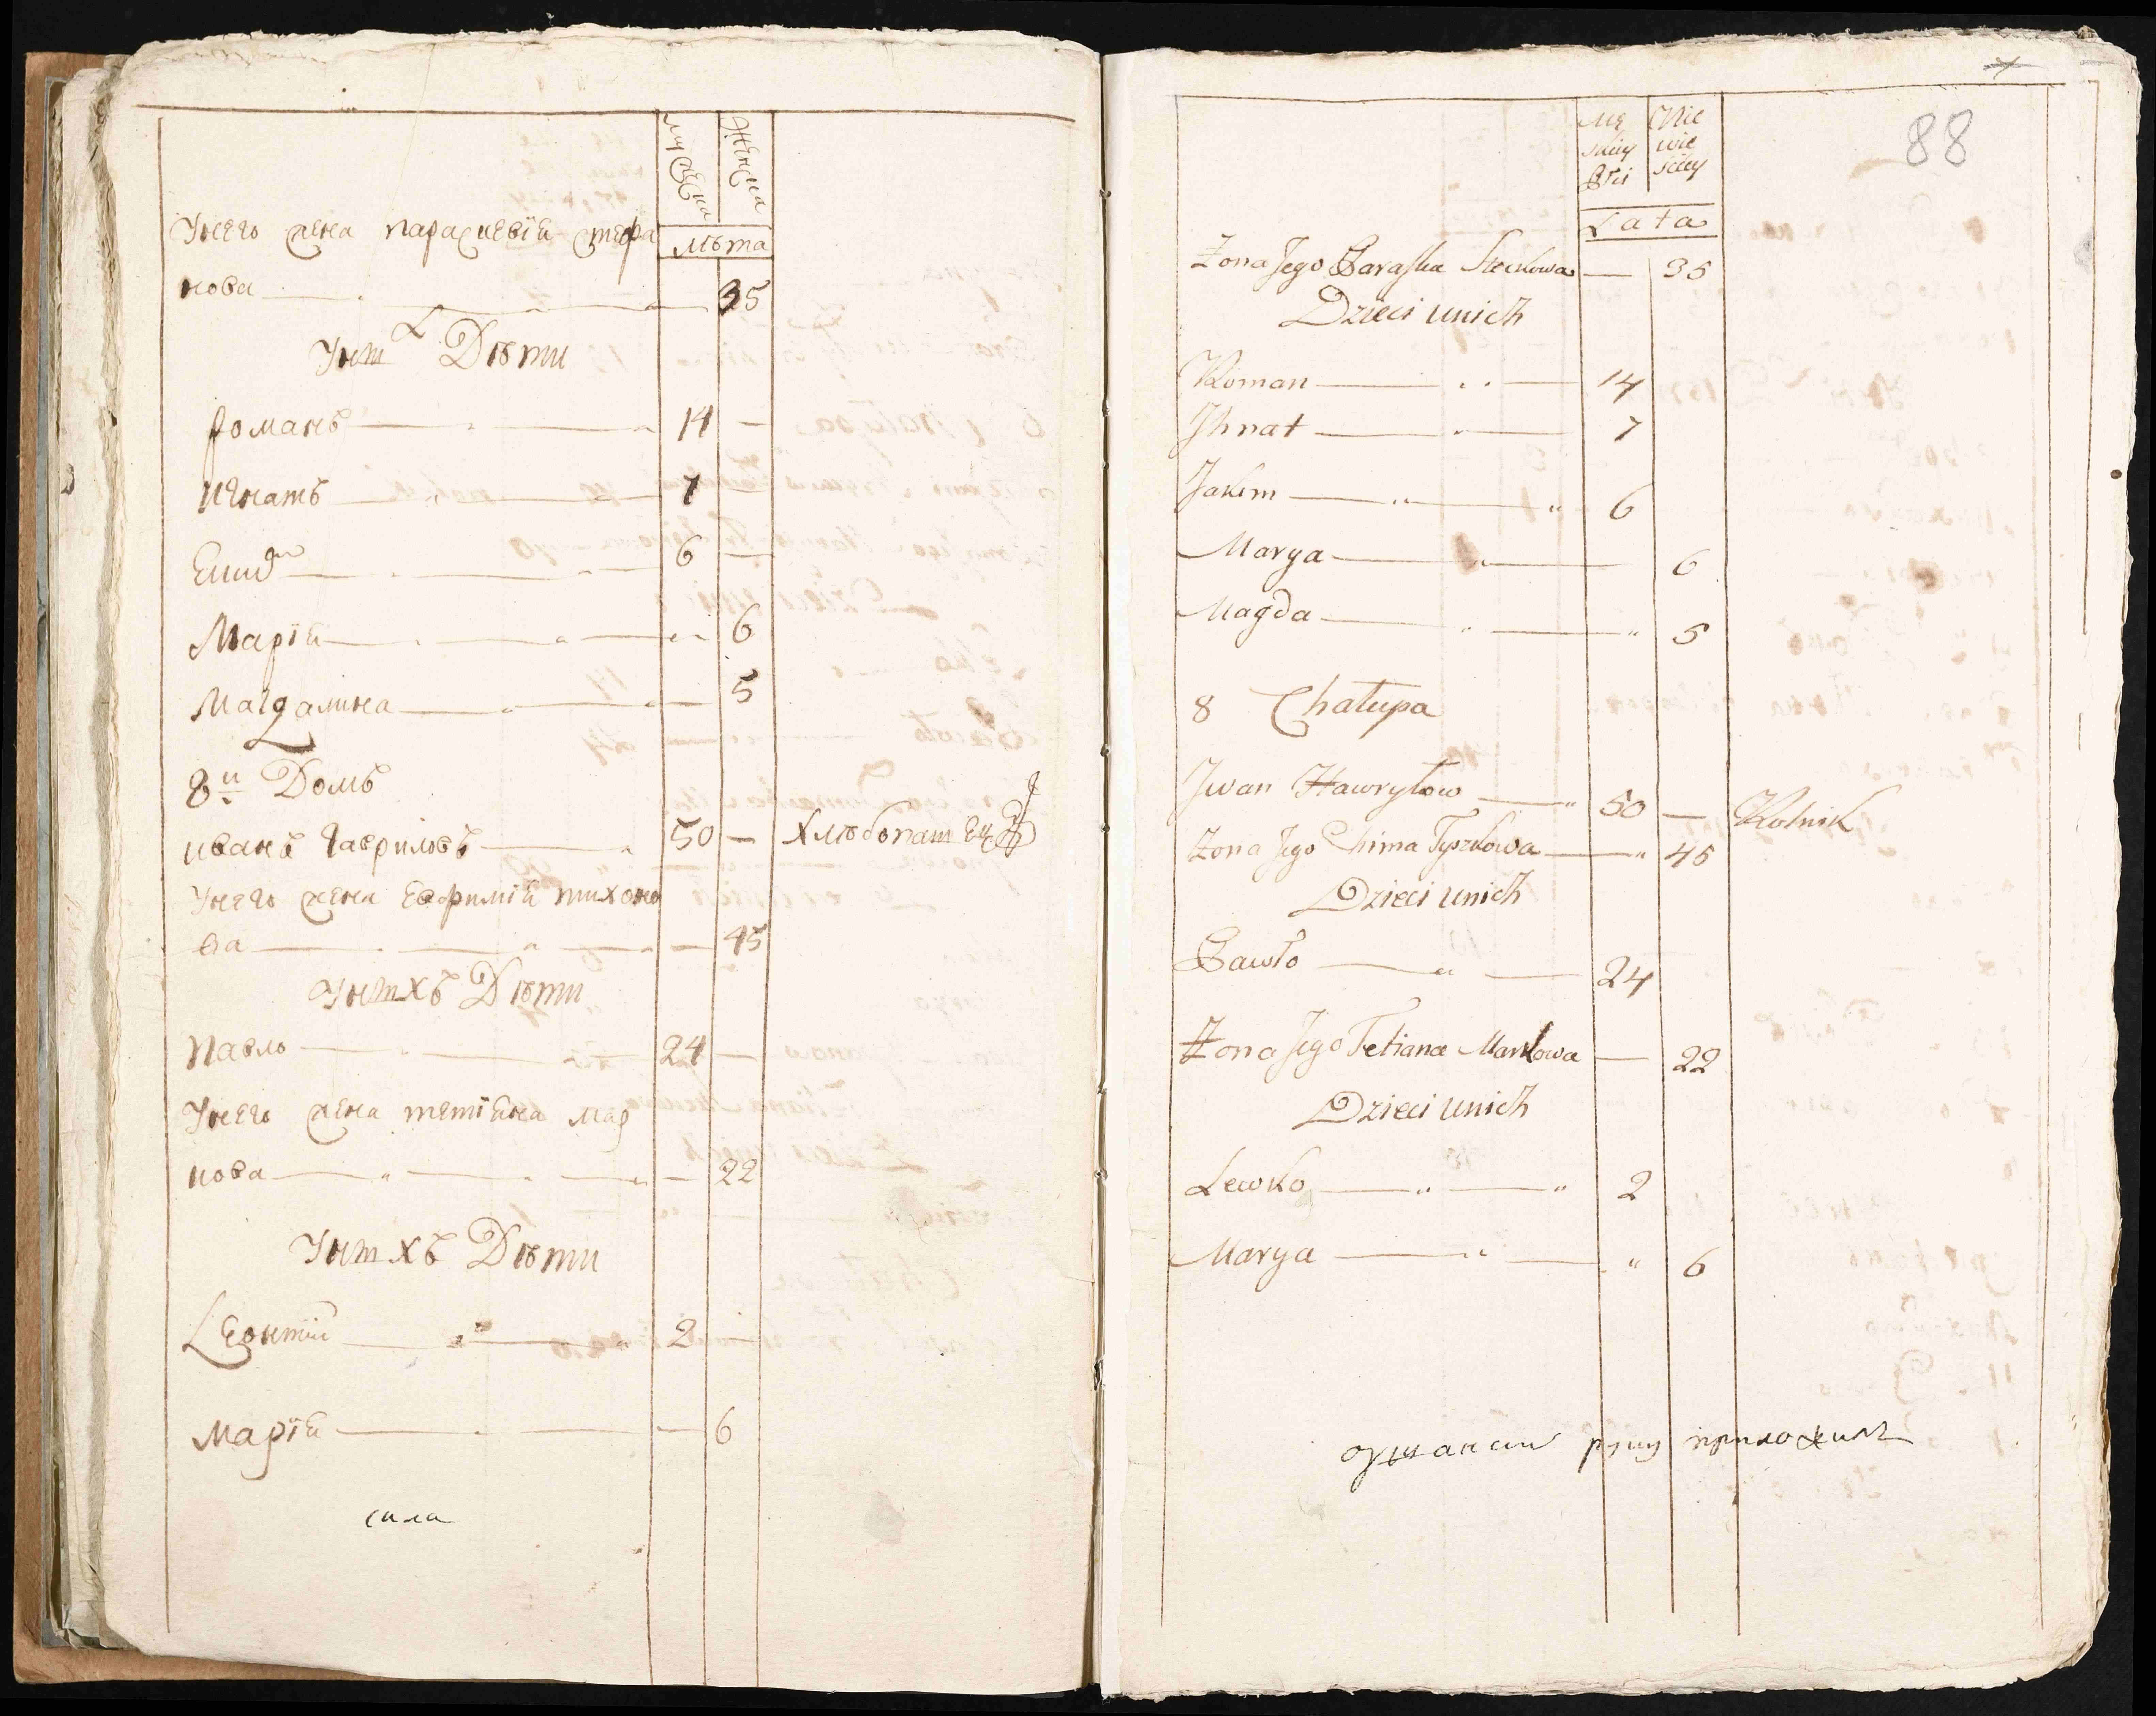 мужеска
женска
лѣта
Унего жена параскевія стефа
нова 35
Унихъ Дѣти
романъ 14 —
игнатъ 7 —
Екимъ 6 —
Марія 6
Магдалина 5
8й Домъ
иванъ гавриловъ 50 — хлѣбопашецъ
Унего жена евфимія тихоно
ва 45
Унихъ Дѣти
павло 24 —
Унего жена тетіяна мар
кова 22
Унихъ Дѣти
Леонтій 2 —
марія 6
сила
88
Mę
skiey
Płci
Nie
wie
sciey
Lata
Zona Jego Paraska Steckowa — 35
Dzieci unich
Roman 14
Jhnat 7
Jakim 6
Marya 6
Magda 5
8 Chałupa
Jwan Hawryłow 50 — Rolnik
Zona Jego Chima Tyszkowa 45
Dzieci unich
Pawło 24
Zona Jego Tetiana Markowa — 22
Dzieci unich
Lewko 2
Marya 6
руку приложилъ